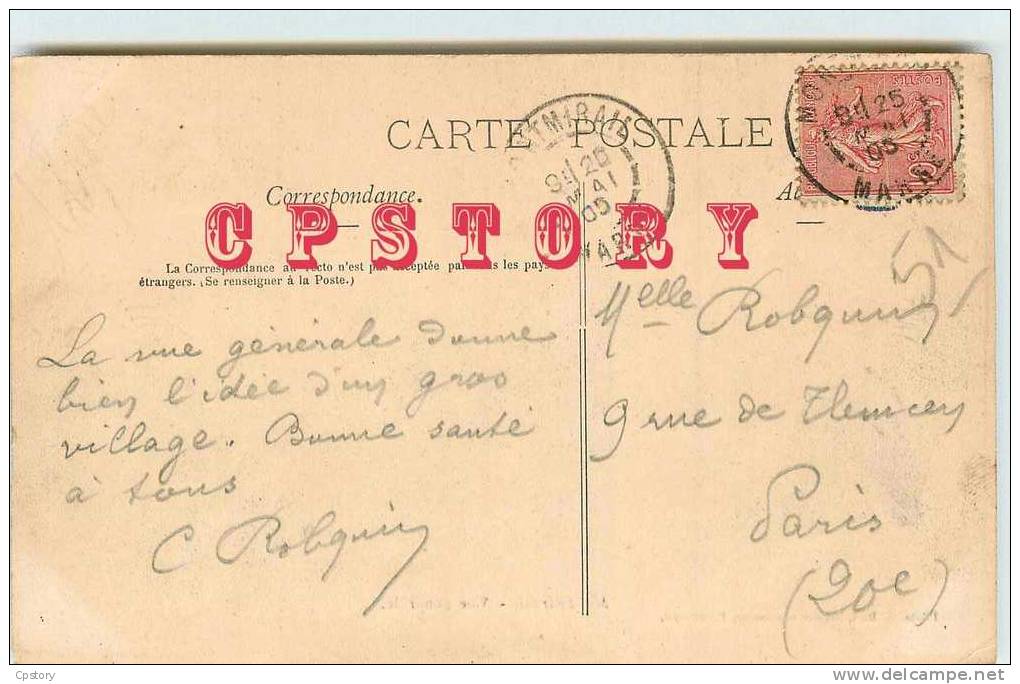 CARTE POSTALE
MONTMIRAIL
8H 25
MAI
05
MARNE
Correspondance.
CPSTORY
La Correspondance au recto n'est pas acceptée par tous les pays
étrangers. (Se renseigner à la Poste.)
La vue générale donne
bien l'idée d'un gros
village. Bonne santé
à tous
C Robquin
51
Melle Robquin
9 rue de Tlemcen
Paris
(20e)
Cpstory
delcampe.net